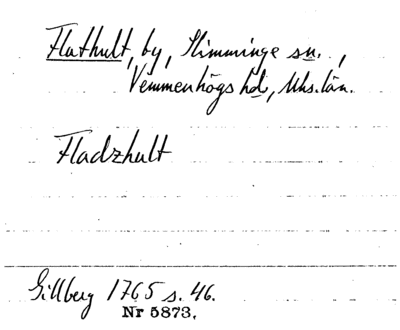 Flathult, by, Slimminge sn.,
Vemmenhögs hd, Mhs. län.
Fladzhult
Gillberg 1765 s. 46.
Nr 5873.